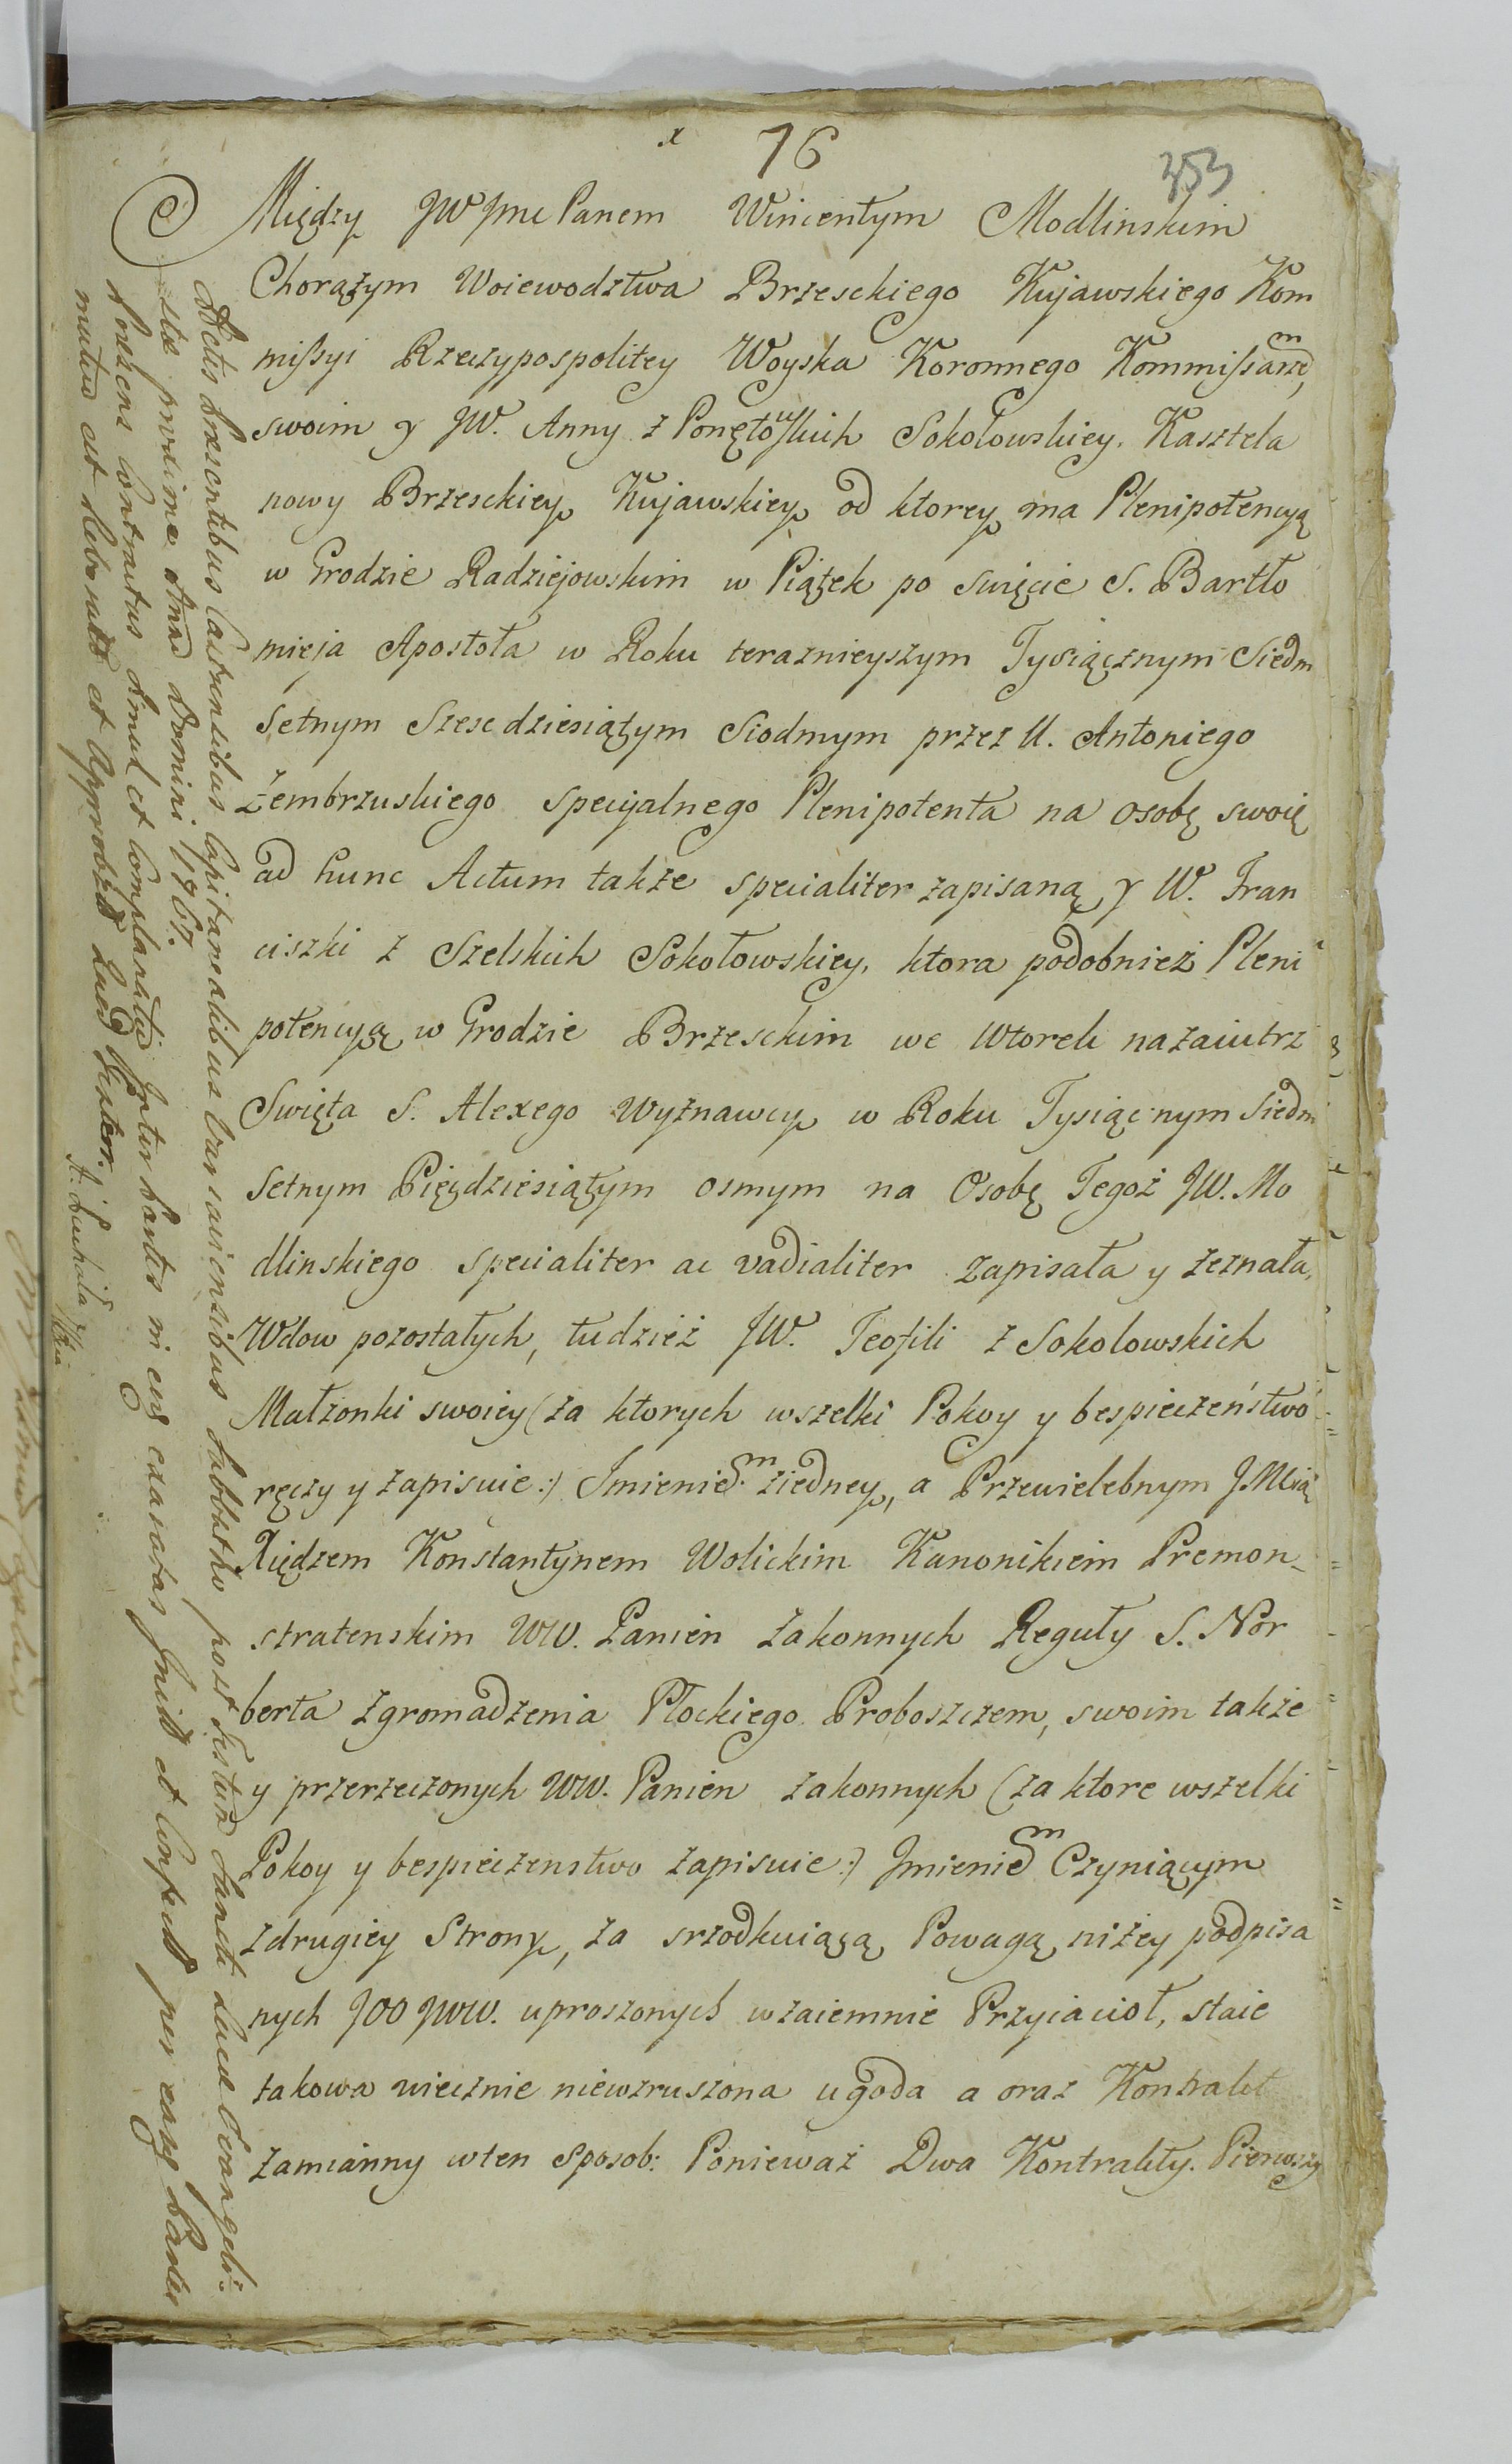 x 76
353
Między JW Jmć Panem Wincentym Modlinskim
Chorążym Woiewodztwa Brzesckiego Kujawskiego Kom
mißyi Rzeczypospolitey Woyska Koronnego Kommißarzem
swoim y JW. Anny z Ponętowskich Sokołowskiey, Kasztela
nowy Brzesckiey Kujawskiey od ktorey ma Plenipotencyą
w Grodzie Radziejowskim w Piątek po Swięcie S. Bartło
mieja Apostoła w Roku teraznieyszym Tysiącznym Siedm
setnym Szescdziesiątym Siodmym przez U. Antoniego
Zembrzuskiego specyalnego Plenipotenta na osobę swoię
ad hunc Actum takze specialiter zapisaną, y W. Fran
ciszki z Szelskich Sokołowskiey, ktora podobnież Pleni
potencyą w Grodzie Brzesckim we Wtorek nazaiutrz
Swięta S. Alexego Wyznawcy w Roku Tysiącnym Siedm
setnym Pięćdziesiątym osmym na Osobę Tegoż JW. Mo
dlinskiego specialiter ac vadialiter zapisała y zeznała,
Wdow pozostałych, tudzież JW. Teofili z Sokolowskich
Małzonki swoiey (za ktorych wszelki Pokoy y bespieczeństwo
ręczy y zapisuie:) Imieniem ziedney, a Przewielebnym J. Mcią
Xiędzem Konstantynem Wolickim Kanonikiem Premon-
stratenskim WW. Panien Zakonnych Reguły S. Nor
berta Zgromadzenia Płockiego Proboszczem, swoim także
y przerzeczonych WW. Panien zakonnych (za ktore wszelki
Pokoy y bespieczenstwo zapisuie:) Jmieniem Czyniącym
zdrugiey Strony, za srzodkuiącą Powagą niżey podpisa
nych JOO JWW. uproszonych wzaiemnie Przyiaciół, staie
takowa wiecznie niewzruszona ugoda a oraz Kontrakt
zamianny wten Sposob: Ponieważ Dwa Kontrakty. Pierwszy
Actis Praesentibus Castrensibus Capitanealibus Varsaviensibus Sabbatho post Festum Sancti Lucae Evangeli:
stae proximo Anno Domini 1767.
Praesens Contractus Simul et Complanatio Inter Partes in eis expressas Initus et Confectus per easdem Partes